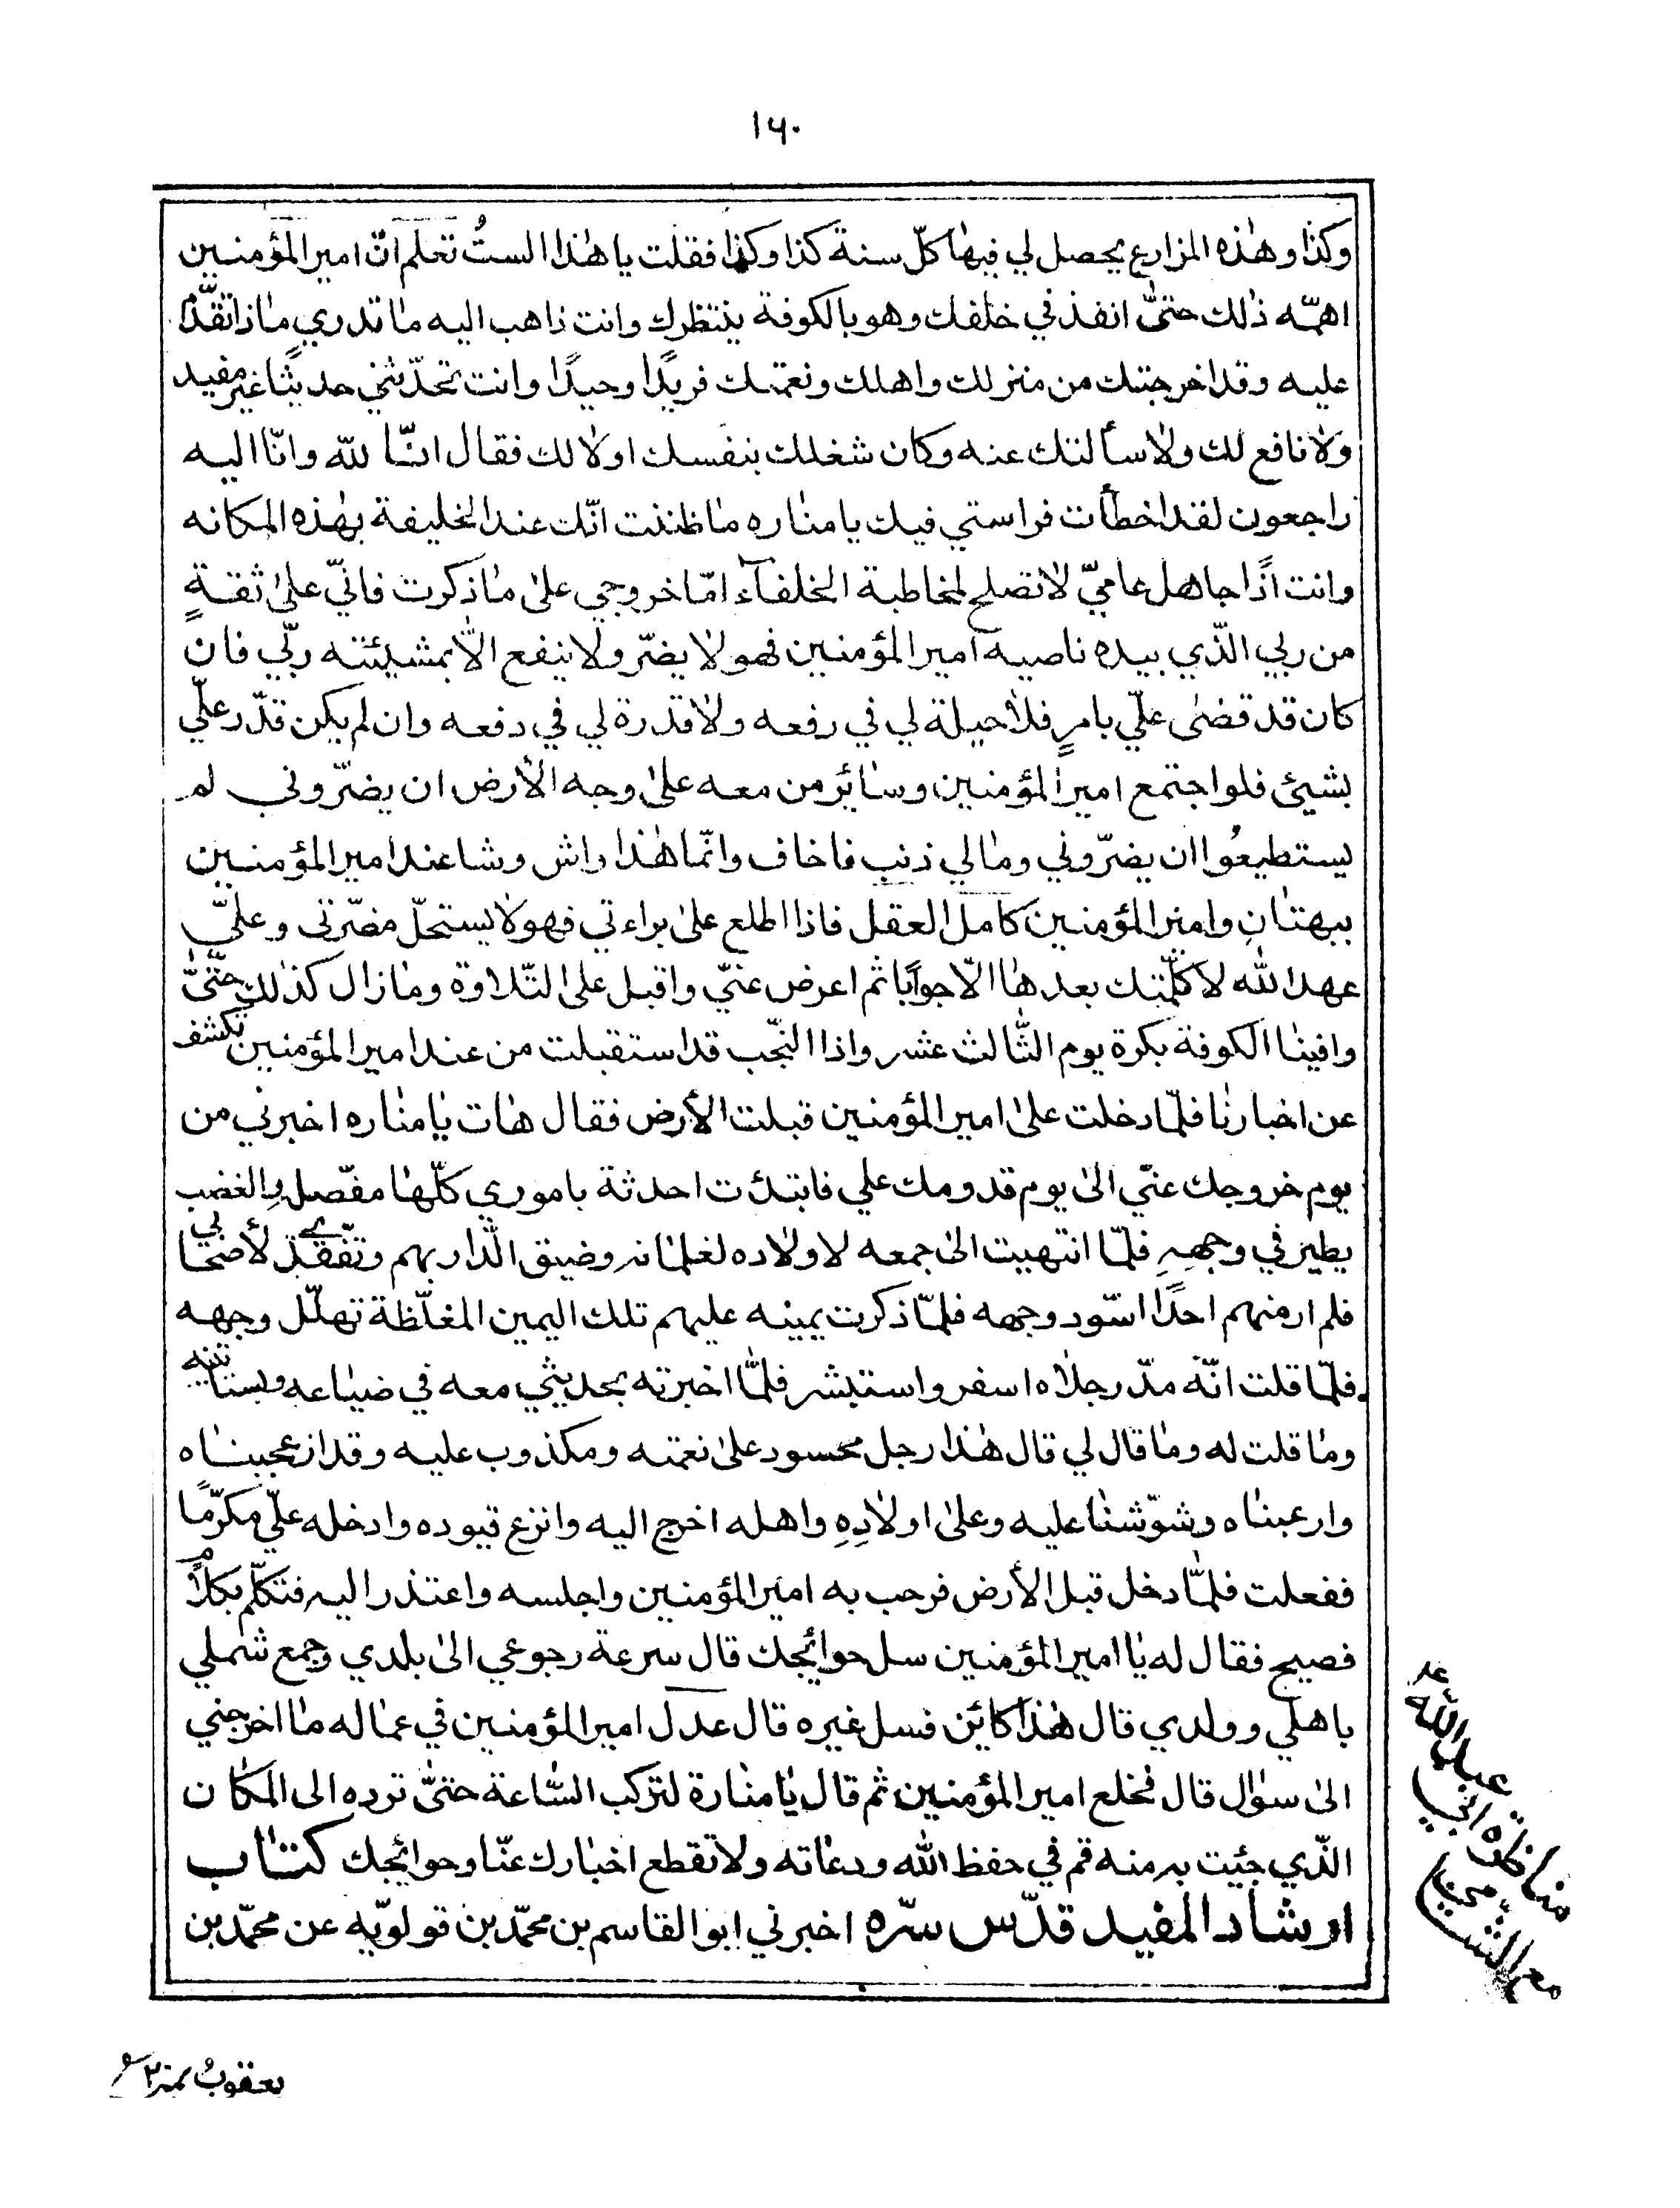 ۱۶۰
وكذا وهٰذه المزارع يحصل لي فيهٰا كلّ سنة كذا وكذا فقلت يا هٰذا الستُ تعلم انّ امير المؤمنين
اهمّه ذٰلك حتىّٰ انفذني خلفك وهو بالكوفة ينتظرك وانت ذاهب اليه مٰا تدري مٰاذا تقدّم
عليه وقد اخرجتك من منزلك واهلك ونعمتك فريدًا وحيدًا وانت تحدّثني حديثًا غير مفيد
ولٰا نافع لك ولٰا سألتك عنه وكان شغلك بنفسك اولٰا لك فقال انّٰا للّه وانّا اليه
راجعون لقد اخطأت فراستي فيك يا منٰاره مٰا ظننت انّك عند الخليفة بهٰذه المكانه
وانت اذًا جاهل عاميّ لٰا تصلح لمخاطبة الخلفآء امّا خروجي علىٰ مٰا ذكرت فانيّ علىٰ ثقةٍ
من ربي الّذي بيده ناصيه امير المؤمنين فهو لٰا يضرّ ولا ينفع الّا بمشيئته ربّي فان
كان قد قضىٰ عليّ بامرٍ فلٰا حيلة لي في رفعه ولٰا قدرة لي في دفعه وان لم يكن قدّر عليّ
بشيئ فلو اجتمع امير المؤمنين وسٰائر من معه علىٰ وجه الأرض ان يضرّوني لم
يستطيعُوا ان يضرّوني ومٰا لي ذنب فاخاف وانّما هٰذا واش وشا عند امير المؤمنين
ببهتٰانِ وامير المؤمنين كامل العقل فاذا اطلع علىٰ براءتي فهو لا يستحلّ مضرّتي وعليّ
عهد اللّه لا كلّمتك بعدهٰا الّا جوابًا ثم اعرض عنيّ واقبل على التّلاوة ومٰا زال كذٰلك حتّىٰ
وافينٰا الكوفة بكرة يوم الثّالث عشر واذا النجّب قد استقبلت من عند امير المؤمنين يكشف
عن اخبارنٰا فلمّا دخلت علىٰ امير المؤمنين قبلت الأرض فقال هٰات يٰا منٰاره اخبرني من
يوم خروجك عنّي الىٰ يوم قدومك علي فابتدئت احدثة باموري كلّهٰا مفصّل والغضب
يطير في وجهِهِ فلمّا انتهيت الىٰ جمعه لاولٰاده لغلمٰانه وضيق الدّار بهم وتفقّدي لأصحٰابي
فلم ار منهم احدًا اسّود وجهه فلمّا ذكرت يمينه عليهم تلك اليمين المغلّظة تهلّل وجهه
فلمّا قلت انّه مدّ رجلٰاه اسفر واستبشر فلمّٰا اخبرته بحديثي معه في ضيٰاعه وبستاتينه
ومٰا قلت له ومٰا قال لي قال هٰذا رجل محسود علىٰ نعمته ومكذوب عليه وقد ازعجبنٰاه
وارعبنٰاه وشوّشنٰا عليه وعلىٰ اولٰادِهِ واهله اخرج اليه وانزع قيوده وادخله عليّ مكرّمًا
ففعلت فلمّٰا دخل قبل الأرض فرحب به امير المؤمنين واجلسه واعتذر اليه فتكلّم بكلٰام
فصيح فقال له يٰا امير المؤمنين سل حوائجك قال سرعة رجوعي الىٰ بلدي وجمع شملي
باهلي وولدي قال هٰذا كائن فسل غيره قال عدل امير المؤمنين في عمٰاله مٰا اخرجني
الىٰ سؤٰال قال فخلع امير المؤمنين ثم قال يٰا منٰارة لتركب السّاعة حتىّٰ ترده الى المكٰان
الذّي جئيت به منه قم في حفظ اللّه ودعٰاته ولا تقطع اخبٰارك عنّا وحوائجك كتٰاب
ارشٰاد المفيد قدّس سرّه اخبرني ابو القاسم بن محمّد بن قولويّه عن محمّد بن
مناظرة ابي عبد اللّه ع
مع الشّامي
يعقوبُ